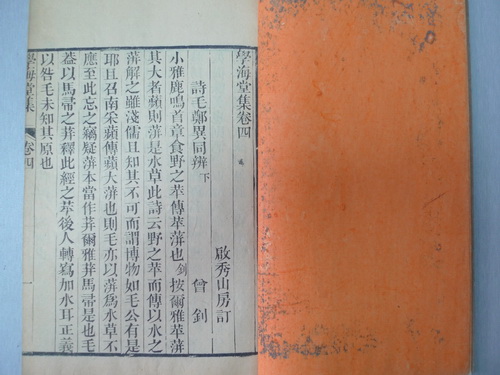 學海堂集卷四
啟秀山房訂
曾釗
詩毛鄭異同辨下
小雅鹿鳴首章食野之苹傳苹蓱也釗按爾雅苹蓱
其大者蘋則蓱是水草此詩云野之苹而傳以水之
蓱解之雖淺儒且知其不可而謂博物如毛公有是
耶且召南采蘋傳蘋大蓱也則毛亦以蓱為水草不
應至此忘之竊疑蓱本當作荓爾雅荓馬帚是也毛
葢以馬帚之荓釋此經之苹後人轉寫加水耳正義
以咎毛未知其原也
學海堂集 卷四 一